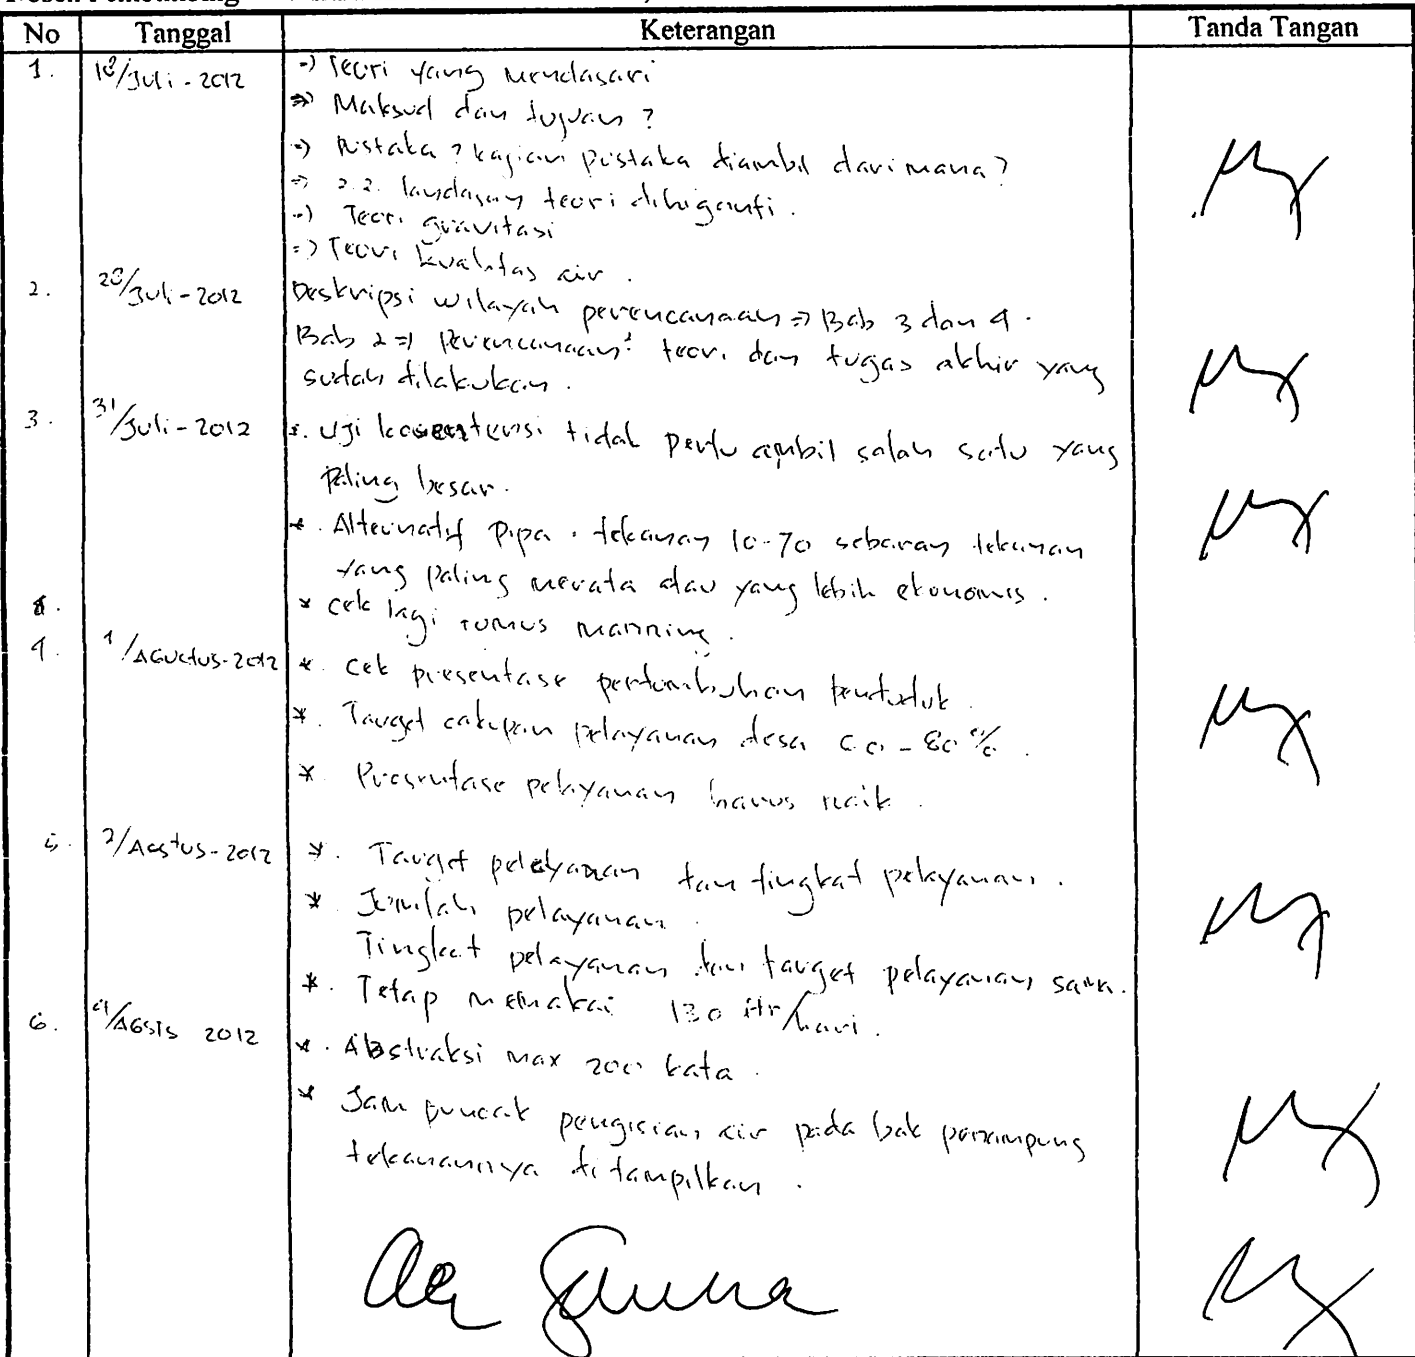 No Tanggal Keterangan Tanda Tangan
1. 18/Juli-2012 => Teori yang mendasari
=> Maksud dan tujuan?
=> Pustaka? kajian pustaka diambil dari mana?
=> 2.2. landasan teori
=> Teori gravitasi
=> Teori kualitas air.
2. 28/Juli-2012 Deskripsi wilayah perencanaan => Bab 3 dan 4.
Bab 2 => Perencanaan² teori dan tugas akhir yang
sudah dilakukan.
3. 31/Juli-2012 *. Uji tidak perlu ambil salah satu yang
paling besar.
*. Alternatif pipa. tekanan 10-70 sebaran tekanan
yang paling merata atau yang lebih ekonomis.
* cek lagi rumus manning.
4. 1/Agustus-2012 *. Cek presentase pertumbuhan penduduk.
*. Target cakupan pelayanan desa 60-80%.
* Presentase pelayanan harus naik.
5. 2/Agstus-2012 *. Target pelayanan dan tingkat pelayanan.
* Jumlah pelayanan.
Tingkat pelayanan dan target pelayanan sama.
*. Tetap memakai 130 ltr/hari.
6. 4/Agsts 2012 *. Abstraksi max 200 kata.
* Jam puncak pengisian air pada bak penampung
tekanannya ditampilkan.